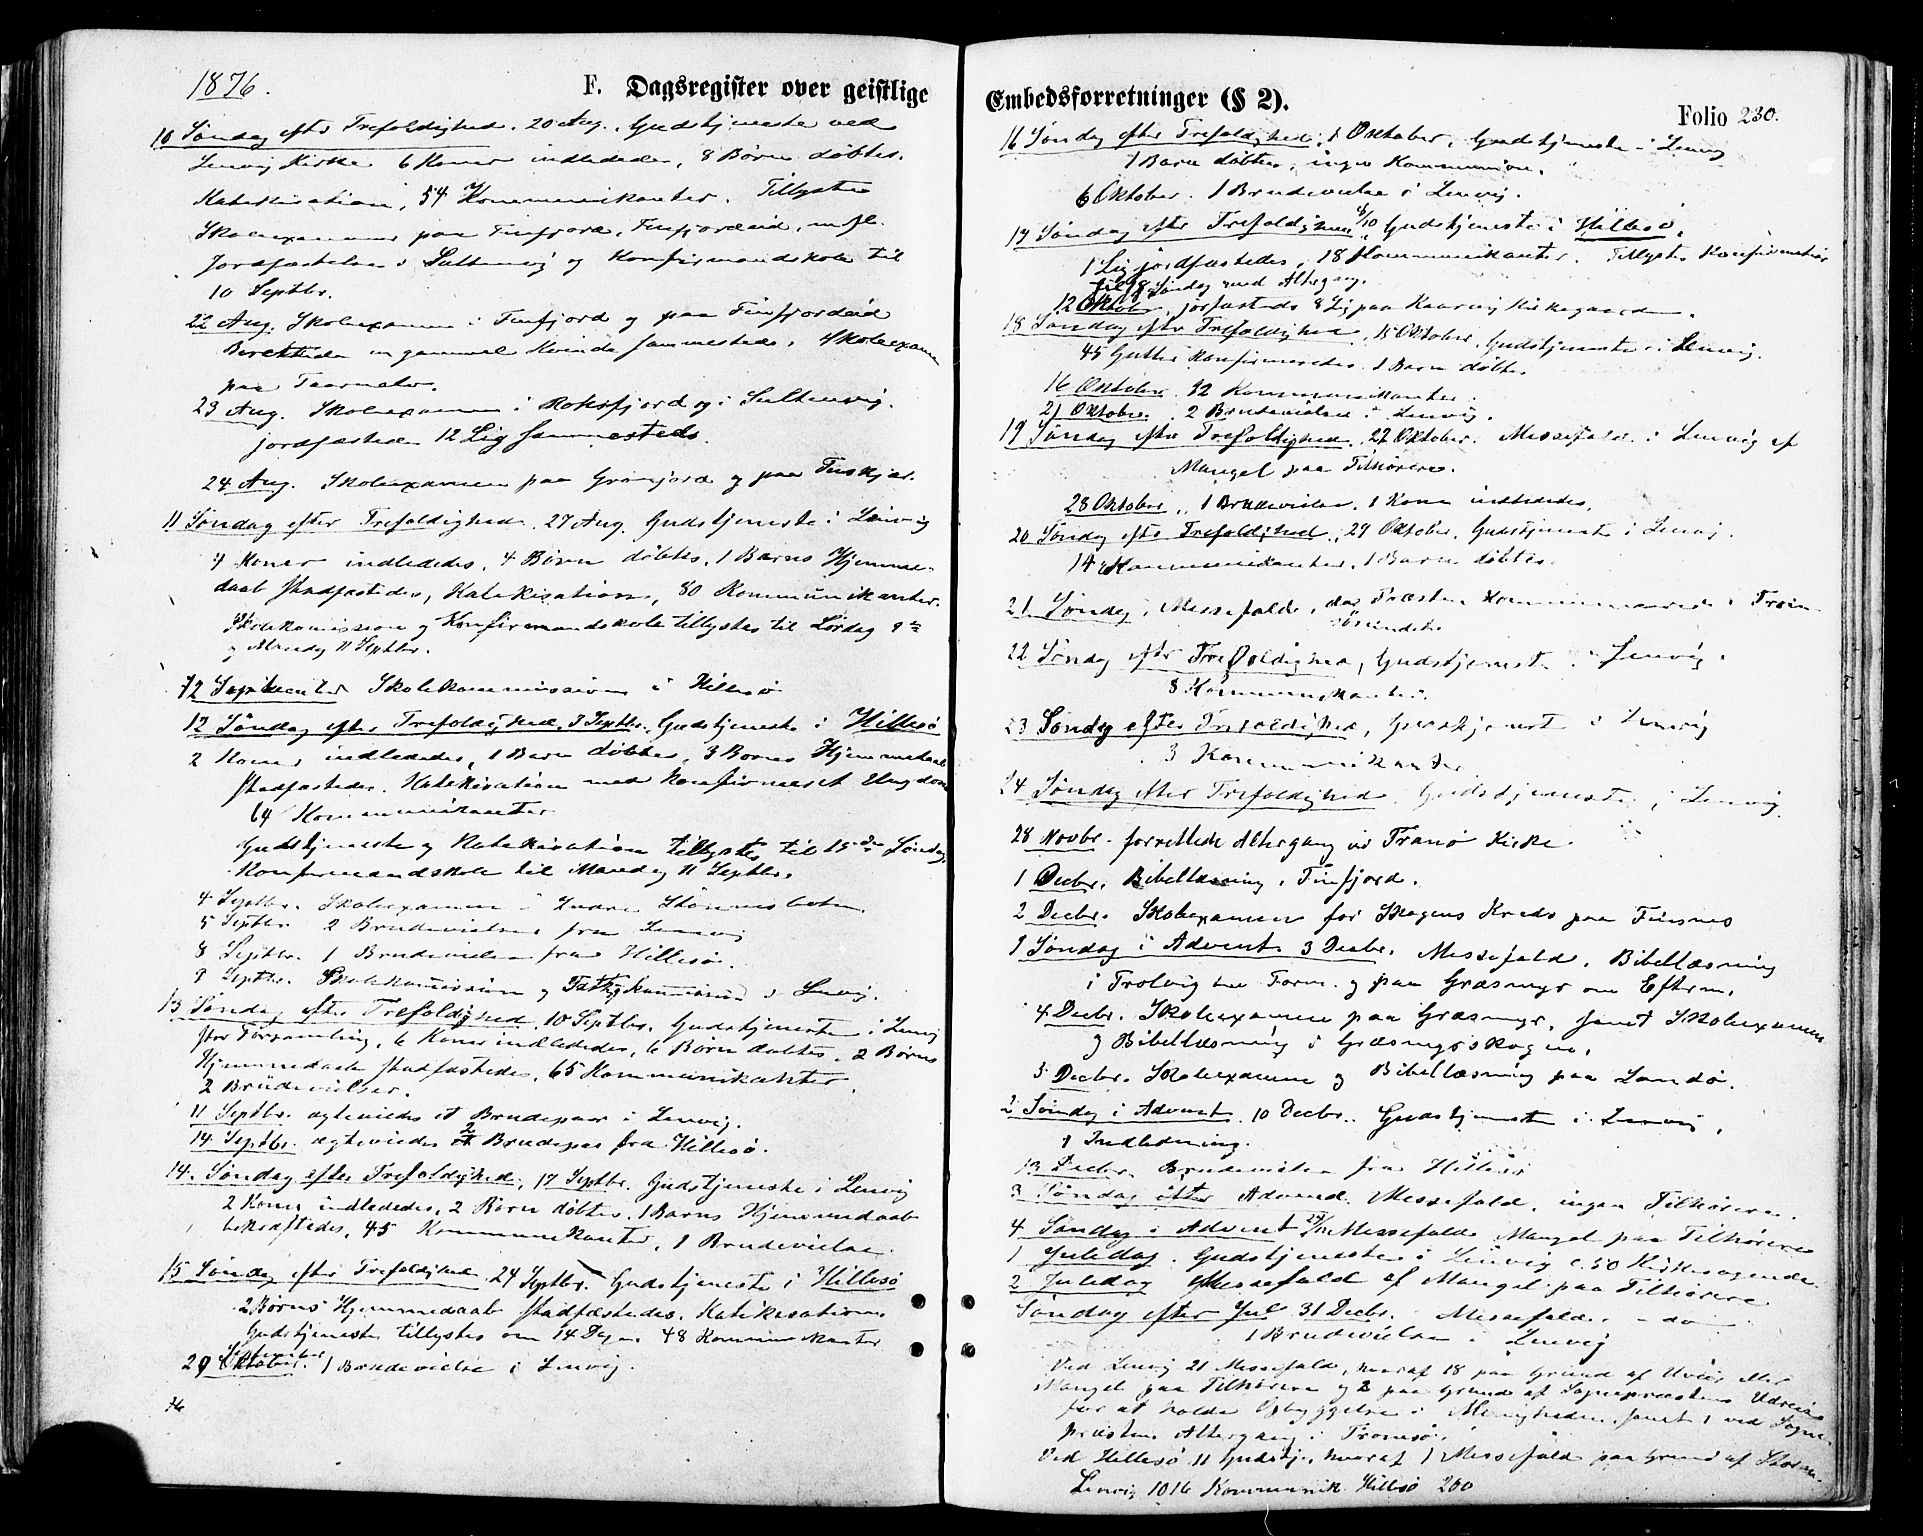 1876.
F. Dagsregister over geistlige
10 Søndag efter Trefoldighed. 20 Aug. Gudstjeneste ved
Lenvig Kirke 6 Koner indlededes, 8 Børn døbtes.
Katekisation, 54 Kommunikanter. Tillystes
Skoleexamen paa Finfjord, Finfjordeid, m. fl.
Jordfæstelse i Sultenvig og Konfirmandskole til
10 Septbr.
22 Aug. Skoleexamen i Finfjord og paa Finfjordeid
Berettede en gammel Kvinde sammesteds. Skoleexamen
paa Taarnelv.
23 Aug. Skoleexamen i Roksfjord og i Sultenvig.
jordfæstede 12 Lig sammesteds.
24 Aug. Skoleexamen paa Grønjord og paa Finskjær.
11 Søndag efter Trefoldighed. 27 Aug. Gudstjeneste i Lenvig
4 Koner indlededes, 4 Børn døbtes, 1 Barns Hjemme-
daab stadfæstedes, Katekisation, 80 Kommunikanter.
Skolekomission og Konfirmandskole tillystes til Lørdag 9de
og Mandag 11 Septbr.
12 September Skolekommission i Hillesø
12 Søndag efter Trefoldighed. 3 Septbr. Gudstjeneste i Hillesø
2 Koner indlededes, 1 Barn døbtes, 3 Børns Hjemmedaab
stadfæstedes. Katekisation med konfirmeret Ungdom
64 Kommunikanter
Gudstjeneste og Katekisation tillystes til 15de Søndag
Konfirmandskole til Mandag 11 Septbr.
4 Septbr. Skoleexamen i Indre
5 Septbr. 2 Brudevielser fra Lenvig
8 Septbr. 1 Brudevielse fra Hillesø.
9 Septbr. Skolekomission og Fattigkomission i Lenvig.
13 Søndag efter Trefoldighed 10 Septbr. Gudstjeneste i Lenvig
stor Forsamling, 6 Koner indlededes, 6 Børn døbtes, 2 Børns
Hjemmedaab stadfæstedes, 65 Kommunikanter.
2 Brudevielser.
11 Septbr. egteviedes et Brudepar i Lenvig.
14 Septbr. egteviedes 2 Brudepar fra Hillesø.
14. Søndag efter Trefoldighed, 17 Septbr. Gudstjeneste i Lenvig
2 Koner indlededes, 2 Børn døbtes. 1 Barns Hjemmedaab
bekræftedes, 45 Kommunikanter, 1 Brudevielse.
15 Søndag efter Trefoldighed 24 Septbr. Gudstjeneste i Hillesø
2 Børns Hjemmedaab stadfæstedes. Katekisation
Gudstjeneste tillystes om 14 Dage. 48 Kommunikanter
29 September 1 Brudevielse i Lenvig.
76
Embedsforretninger (§ 2).
Folio 230.
16 Søndag efter Trefoldighed, 1 Oktober, Gudstjeneste i Lenvig
1 Barn døbtes, ingen Kommunion.
6 Oktober. 1 Brudevielse i Lenvig.
17 Søndag efter Trefoldighed 8/10 Gudstjeneste i Hillesø.
1 Lig jordfæstedes, 18 Kommunikanter. Tillystes Konfirmation
til 18 Søndag med Altergang.
12 Oktober jorfæstede 8 Lig paa Kaarvig Kirkegaarden.
18 Søndag efter Trefoldighed, 15 Oktober, Gudstjeneste i Lenvig.
45 Gutter konfirmeredes. 1 Barn døbtes.
16 Oktober 92 Kommunikanter.
21 Oktober. 2 Brudevielser i Lenvig.
19 Søndag efter Trefoldighed. 22 Oktober. Messefald i Lenvig af
Mangel paa Tilhørere.
28 Oktober, 1 Brudevielse, 1 Kone indlededes.
20 Søndag efter Trefoldighed, 29 Oktober, Gudstjeneste i Lenvig.
14 Kommunikanter. 1 Barn døbtes.
21 Søndag, Messefald, da Præsten
22 Søndag efter Trefoldighed, Gudstjeneste i Lenvig.
8 Kommunikanter.
23 Søndag efter Trefoldighed, Gudstjeneste i Lenvig
3 Kommunikanter
24 Søndag efter Trefoldighed Gudstjeneste i Lenvig
28 Novbr. forrettede Altergang ved Tranø Kirke.
1 Decbr. Bibellæsning i Finfjord.
2 Decbr. Skoleexamen for Skogens Kreds paa Finsnes
1 Søndag i Advent 3 Decbr. Messefald. Bibellæsning
i Trolvig om Form. og paa Græsmyr om Efterm.
4 Decbr. Skoleexamen paa Græsmyr, samt Skoleexamen
og Bibellæsning i Græsmyrskogen.
5 Decbr. Skoleexamen og Bibellæsning paa Sandø.
2 Søndag i Advent 10 Decbr. Gudstjeneste i Lenvig,
1 Indledning.
13 Decbr. Brudevielse fra Hillesø
3 Søndag efter Advend. Messefald, ingen Tilhørere.
4 Søndag i Advent 24/12 Messefald Mangel paa Tilhørere
1 Juledag. Gudstjeneste i Lenvig c. 50 Kirkesøgende
2 Juledag Messefald af Mangel paa Tilhørere
Søndag efter Jul 31 Decbr. Messefald. - do -
1 Brudevielse i Lenvig
Ved Lenvig 21 Messefald, hvoraf 18 paa Grund af Uveir eller
Mangel paa Tilhørere og 2 paa Grund af Sognepræstens Udreise
for at holde Opbyggelse i Menigheden, samt 1 ved Sogne-
præstens Altergang i Tromsø.
Ved Hillesø 11 Gudstj., hvoraf 1 Messefald paa Grund af Storm.
Lenvig 1016 Kommunik. Hillesø 260